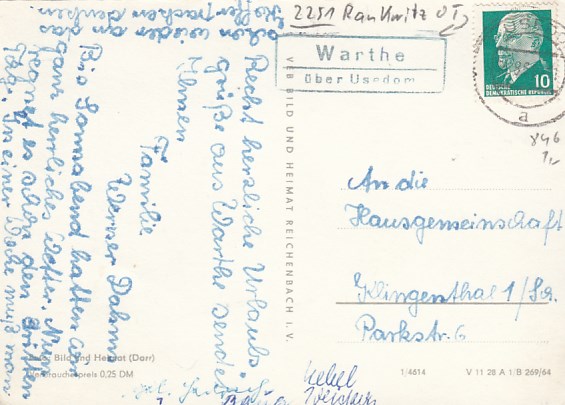 2251 Rankwitz OT
Warthe
über Usedom
DEUTSCHE
DEMOKRATISCHE REPUBLIK
10
a
846
1,-
Recht herzliche Urlaubs
grüße aus Warthe sendet
Ihnen
Familie
Werner
Bis Sonnabend hatten wir
ganz herrliches Wetter. Nun
regnet es schon den dritten
Tag. In einer Woche muß man
schon wieder an das
Kofferpacken denken.
VEB BILD UND HEIMAT REICHENBACH I. V.
An die
Hausgemeinschaft
Klingenthal 1/Sa.
Parkstr. 6
Bild und Heimat (Darr)
Verbraucherpreis 0,25 DM
1/4614
V 11 28 A 1 B 269/64